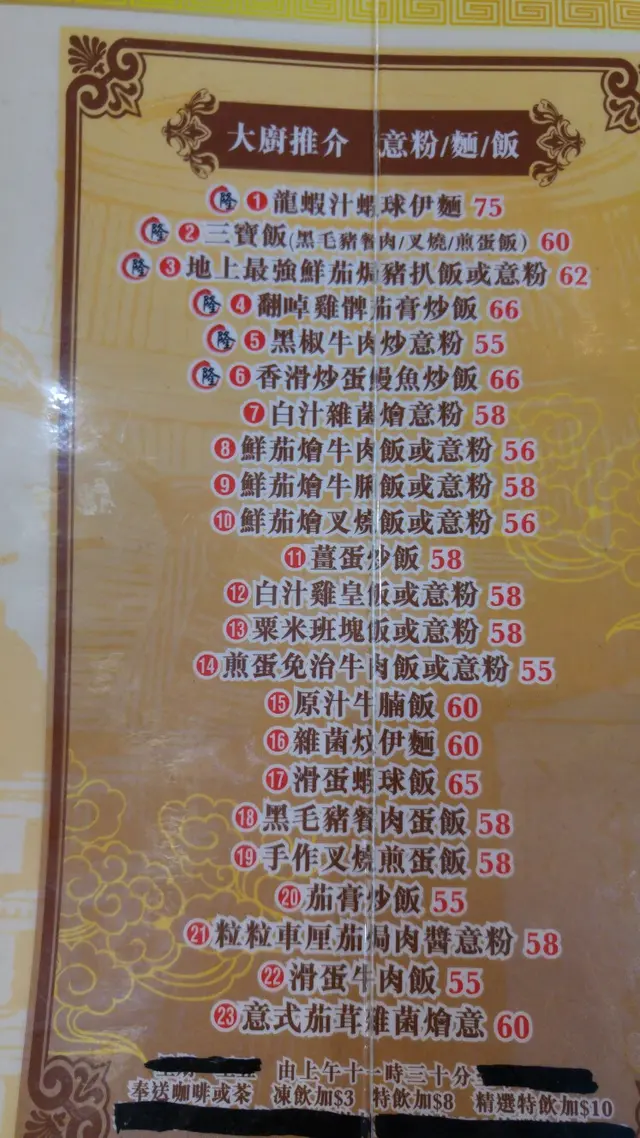 大廚推介 意粉/麵/飯
隆 1 龍蝦汁蝦球伊麵 75
隆 2 三寶飯(黑毛豬餐肉/叉燒/煎蛋飯) 60
隆 3 地上最強鮮茄焗豬扒飯或意粉 62
隆 4 翻啅雞髀茄膏炒飯 66
隆 5 黑椒牛肉炒意粉 55
隆 6 香滑炒蛋鰻魚炒飯 66
7 白汁雜菌燴意粉 58
8 鮮茄燴牛肉飯或意粉 56
9 鮮茄燴牛脷飯或意粉 58
10 鮮茄燴叉燒飯或意粉 56
11 薑蛋炒飯 58
12 白汁雞皇飯或意粉 58
13 粟米班塊飯或意粉 58
14 煎蛋免治牛肉飯或意粉 55
15 原汁牛腩飯 60
16 雜菌炆伊麵 60
17 滑蛋蝦球飯 65
18 黑毛豬餐肉蛋飯 58
19 手作叉燒煎蛋飯 58
20 茄膏炒飯 55
21 粒粒車厘茄焗肉醬意粉 58
22 滑蛋牛肉飯 55
23 意式茄茸雜菌燴意 60
由上午十一時三十分
奉送咖啡或茶 凍飲加$3 特飲加$8 精選特飲加$10